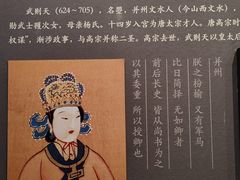 武则天（624～705），名曌，并州文水人（今山西文水），
勋武士彟次女，母亲杨氏。十四岁入宫为唐太宗才人。唐高宗时
权谋”，渐涉政事，与高宗并称二圣。高宗去世，武则天以皇太后
并州
朕之枌榆
又有军马
比日简择
无如卿者
前后长史
皆从尚书为之
以其委重
所以授卿也